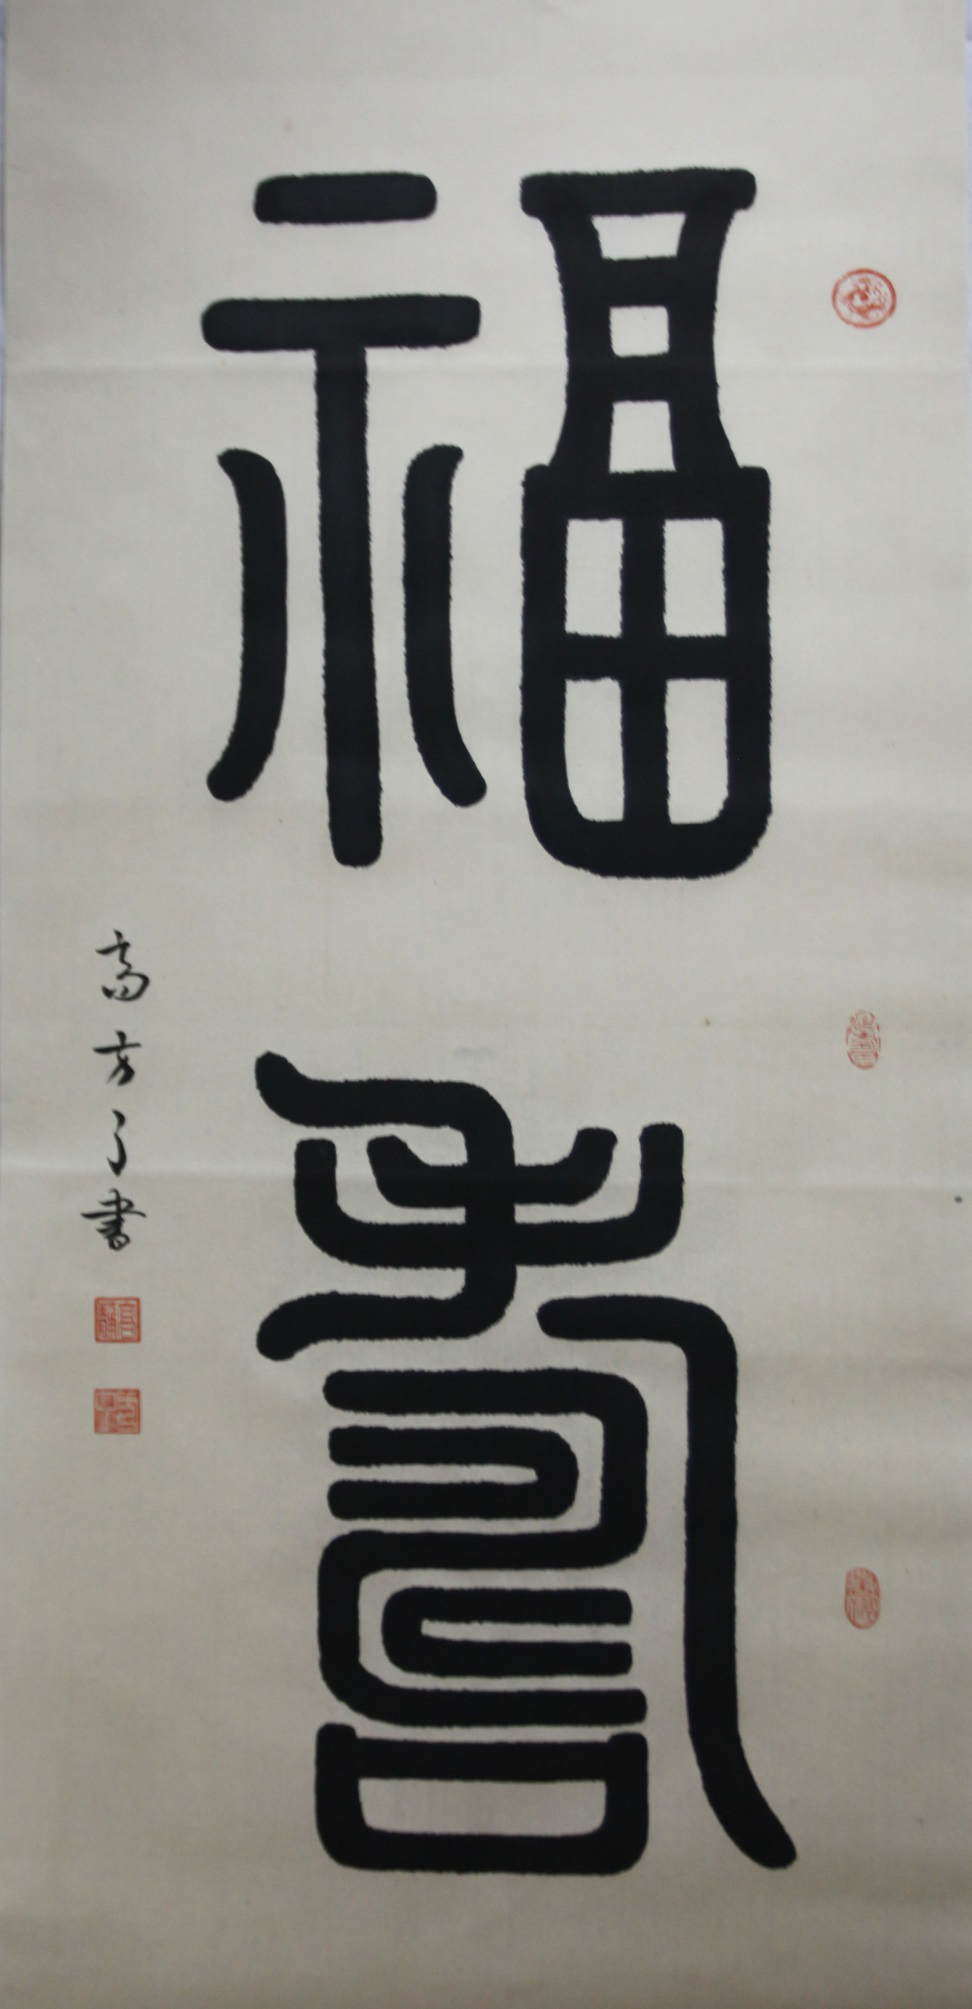 福壽
高方了書